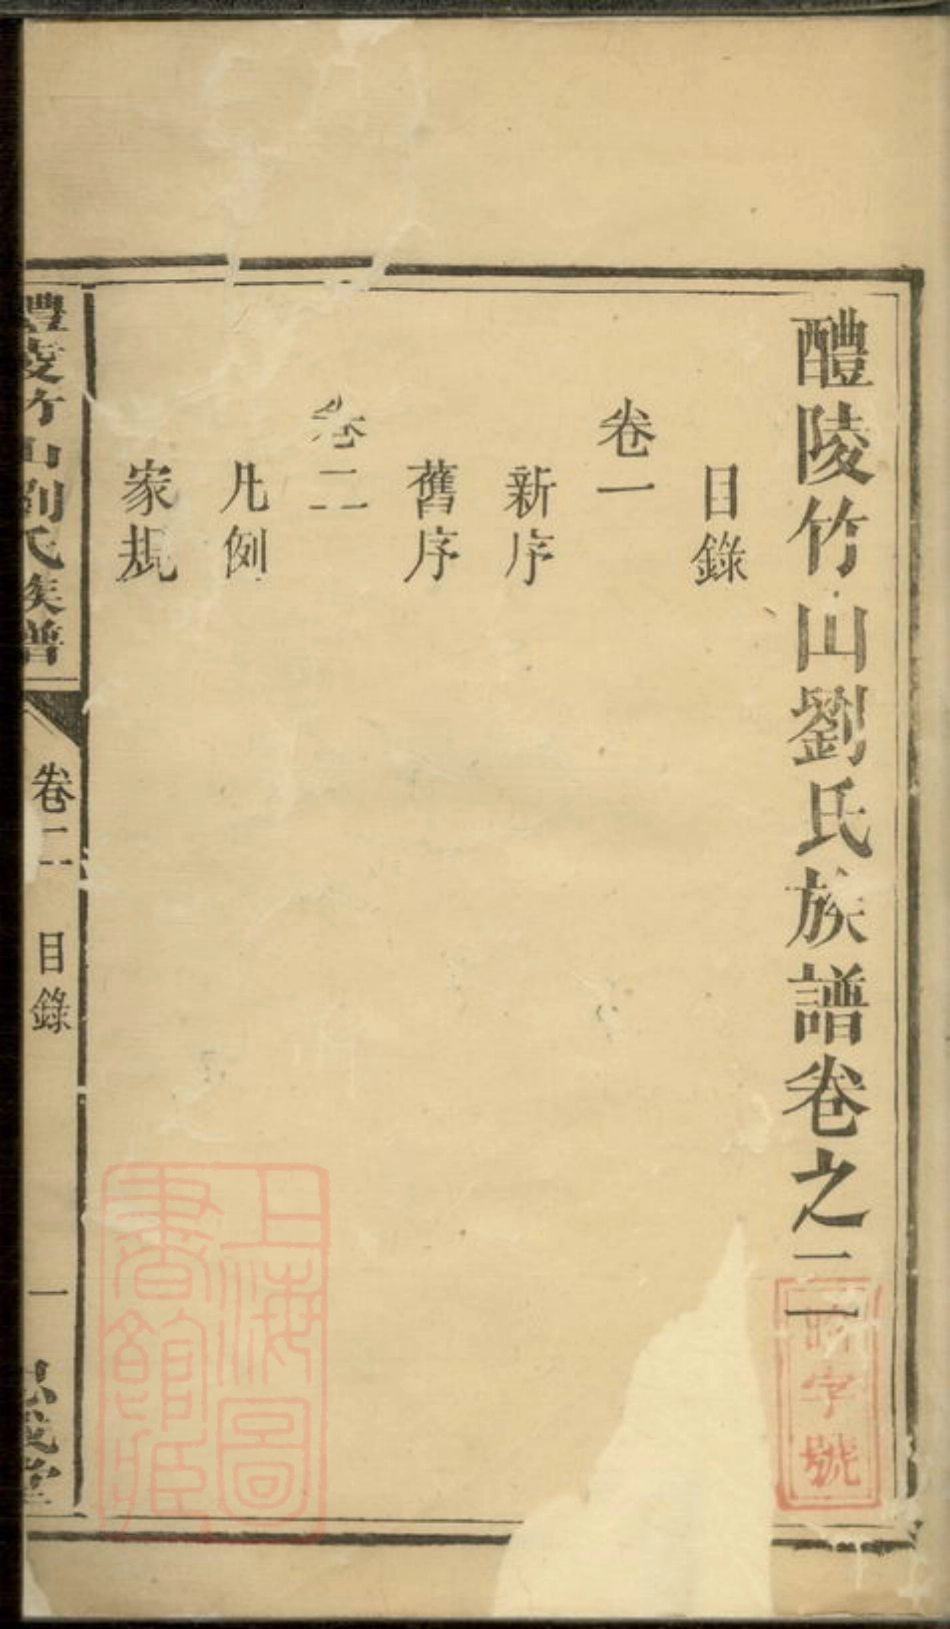 醴陵竹山劉氏族譜卷之二
目錄
卷一
新序
舊序
卷二
凡例
家規
醴陵竹山劉氏族譜
卷二
目錄
一
堂
字號
上海圖
書館藏